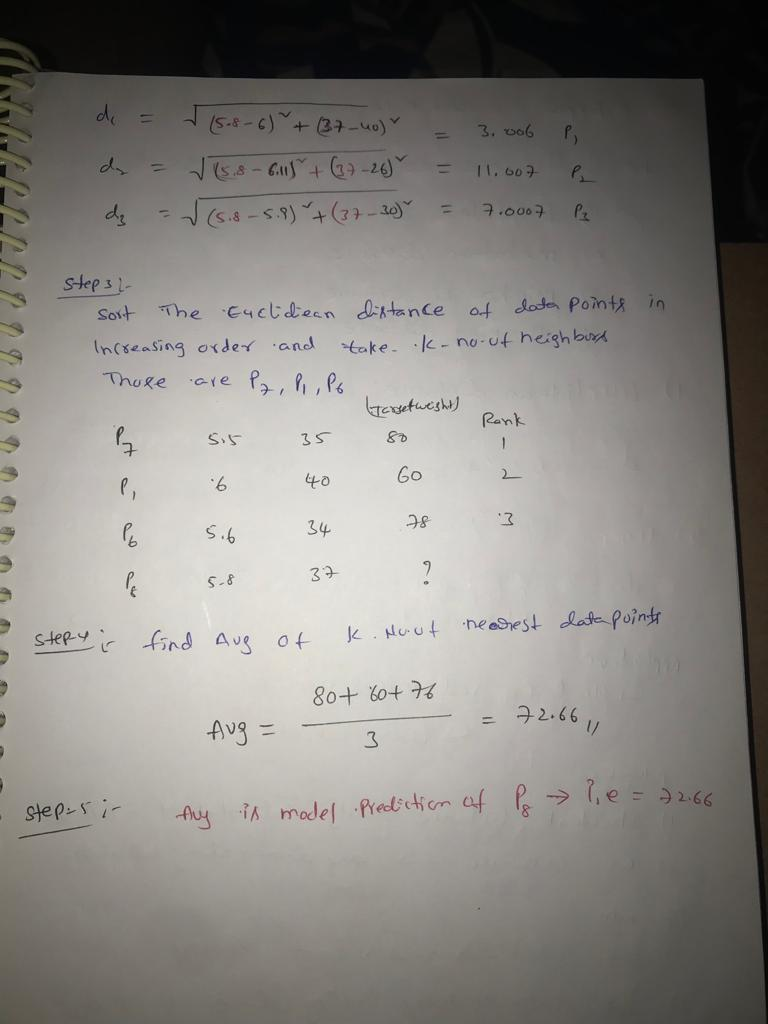 d₁ = √(5.8-6)² + (37-40)² = 3.006 P₁
d₂ = √(5.8-6.11)² + (37-26)² = 11.007 P₂
d₃ = √(5.8-5.9)² + (37-30)² = 7.0007 P₃
Step 3 :-
Sort The Euclidean distance of data points in
Increasing order and take K-no.of neighbors
Those are P₇, P₁, P₆
(Target weight) Rank
P₇ 5.5 35 80 1
P₁ 6 40 60 2
P₆ 5.6 34 78 3
P₈ 5.8 37 ?
Step-4 :- find Avg of K.No.of nearest datapoints
Avg = 80+60+78 / 3 = 72.66 //
Step-5 :- Avg is model prediction of P₈ → i,e = 72.66